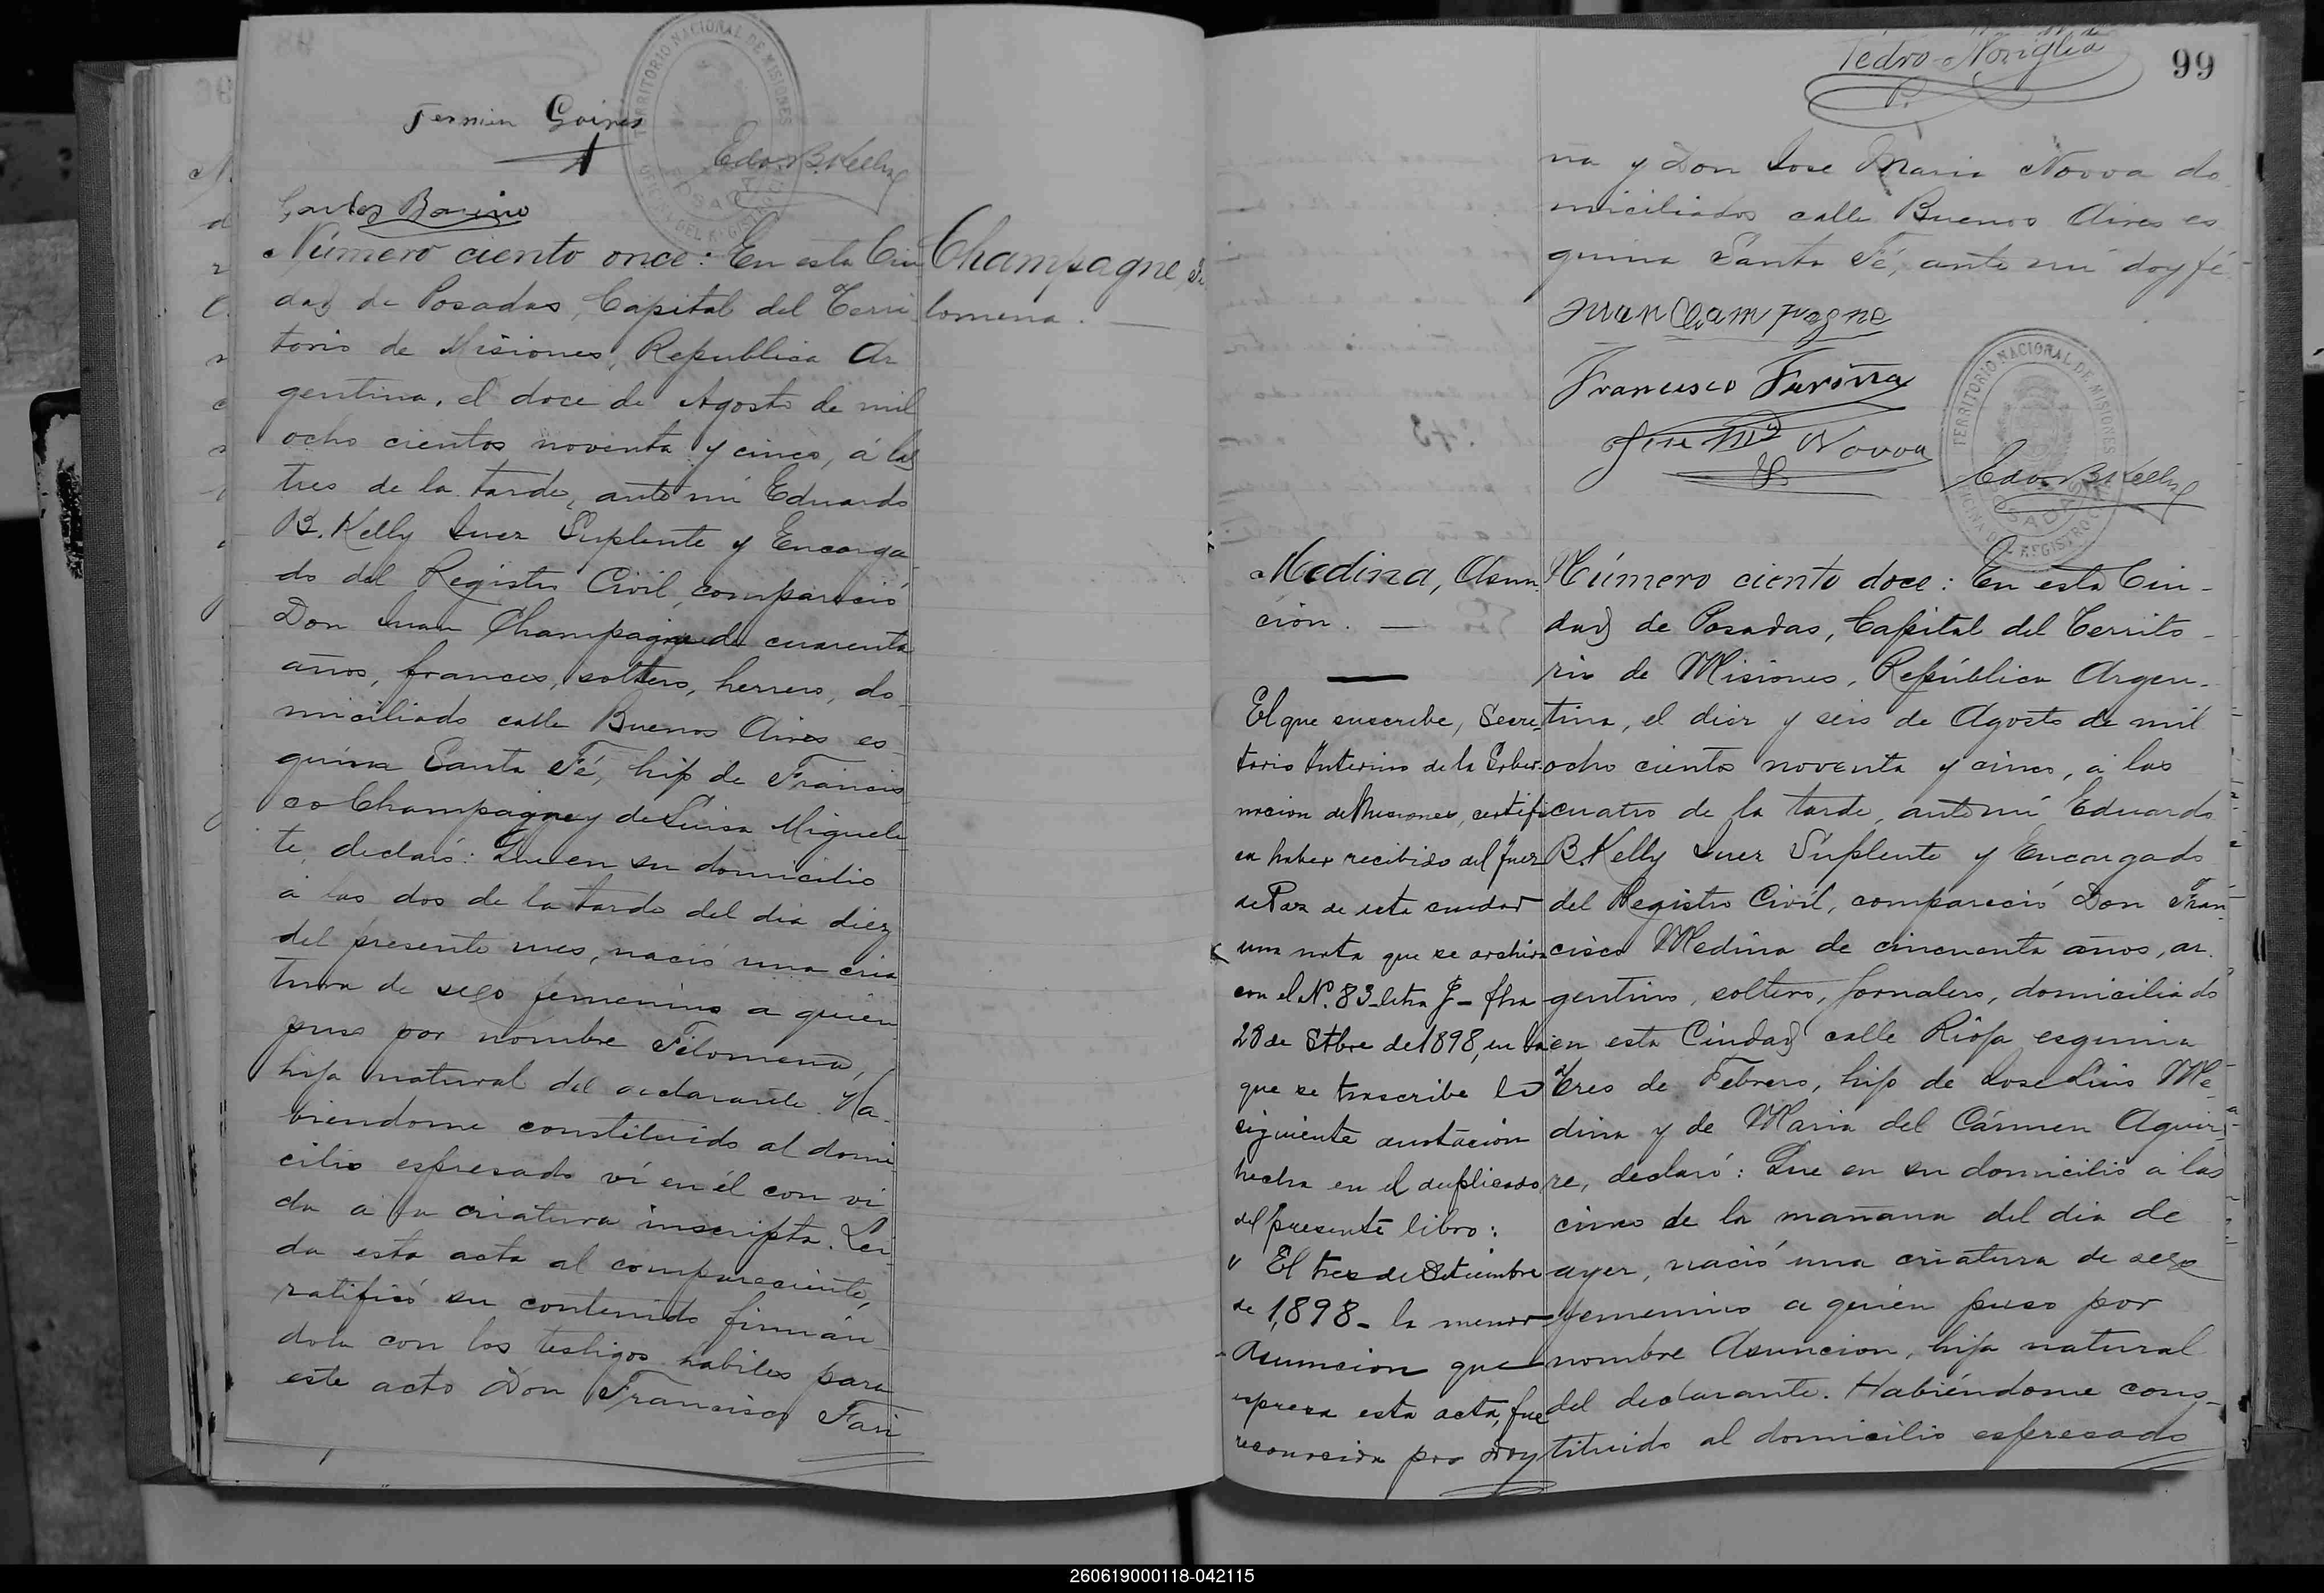 Fermin Goires
Edo. B. Kelly
TERRITORIO NACIONAL DE MISIONES
POSADAS
Carlos Barino
Número ciento once: En esta Ciu
dad de Posadas, Capital del Terri
torio de Misiones, Republica Ar
gentina, el doce de Agosto de mil
ocho cientos noventa y cinco, á las
tres de la tarde, ante mí Eduardo
B. Kelly Juez Suplente y Encarga
do del Registro Civil, compareció
Don Juan Champagne de cuarenta
años, frances, soltero, herrero, do
miciliado calle Buenos Aires es
quina Santa Fé, hijo de Francis
co Champagne y de Luisa Miguele
te, declaró: Que en su domicilio
á las dos de la tarde del dia diez
del presente mes, nació una cria
tura de sexo femenino a quien
puso por nombre Filomena,
hija natural del declarante. Ha-
biendome constituido al domi
cilio espresado ví en él con vi
da á la criatura inscripta. Lei-
da esta acta al compareciente,
ratificó su contenido firmán
dola con los testigos habiles para
este acto Don Francisco Fari
Champagne, Fi
lomena. —
99
Pedro Noriglia
na y Don Jose Maria Novoa do
miciliados calle Buenos Aires es
quina Santa Fé, ante mí doy fé
Juan Champagne
Francisco Fariña
Jose Ma Novoa
TERRITORIO NACIONAL DE MISIONES
OFICINA DEL REGISTRO CIVIL
POSADAS
Edo. B. Kelly
Medina, Asun
ción. —
El que suscribe, Secre-
tario Interino de la Gober-
nacion de Misiones, certifi
ca haber recibido del Juez
de Paz de esta ciudad
una nota que se archiva
con el N.º 83 letra J - fha
28 de Stbre de 1898, en la
que se trascribe la
siguiente anotación
hecha en el duplicado
del presente libro:
" El tres de Setiembre
de 1,898 - la menor
Asuncion que
espresa esta acta, fue
reconocida por Don
Número ciento doce: En esta Ciu-
dad de Posadas, Capital del Territo-
rio de Misiones, República Argen-
tina, el diez y seis de Agosto de mil
ocho cientos noventa y cinco, á las
cuatro de la tarde, ante mí Eduardo
B. Kelly Juez Suplente y Encargado
del Registro Civil, compareció Don Fran-
cisco Medina de cincuenta años, ar-
gentino, soltero, jornalero, domiciliado
en esta Ciudad calle Rioja esquina
Tres de Febrero, hijo de Jose Luis Me-
dina y de Maria del Cármen Aguir-
re, declaró: Que en su domicilio a las
cinco de la mañana del dia de
ayer, nació una criatura de sexo
femenino a quien puso por
nombre Asuncion, hija natural
del declarante. Habiéndome cons-
tituido al domicilio espresado
260619000118-042115